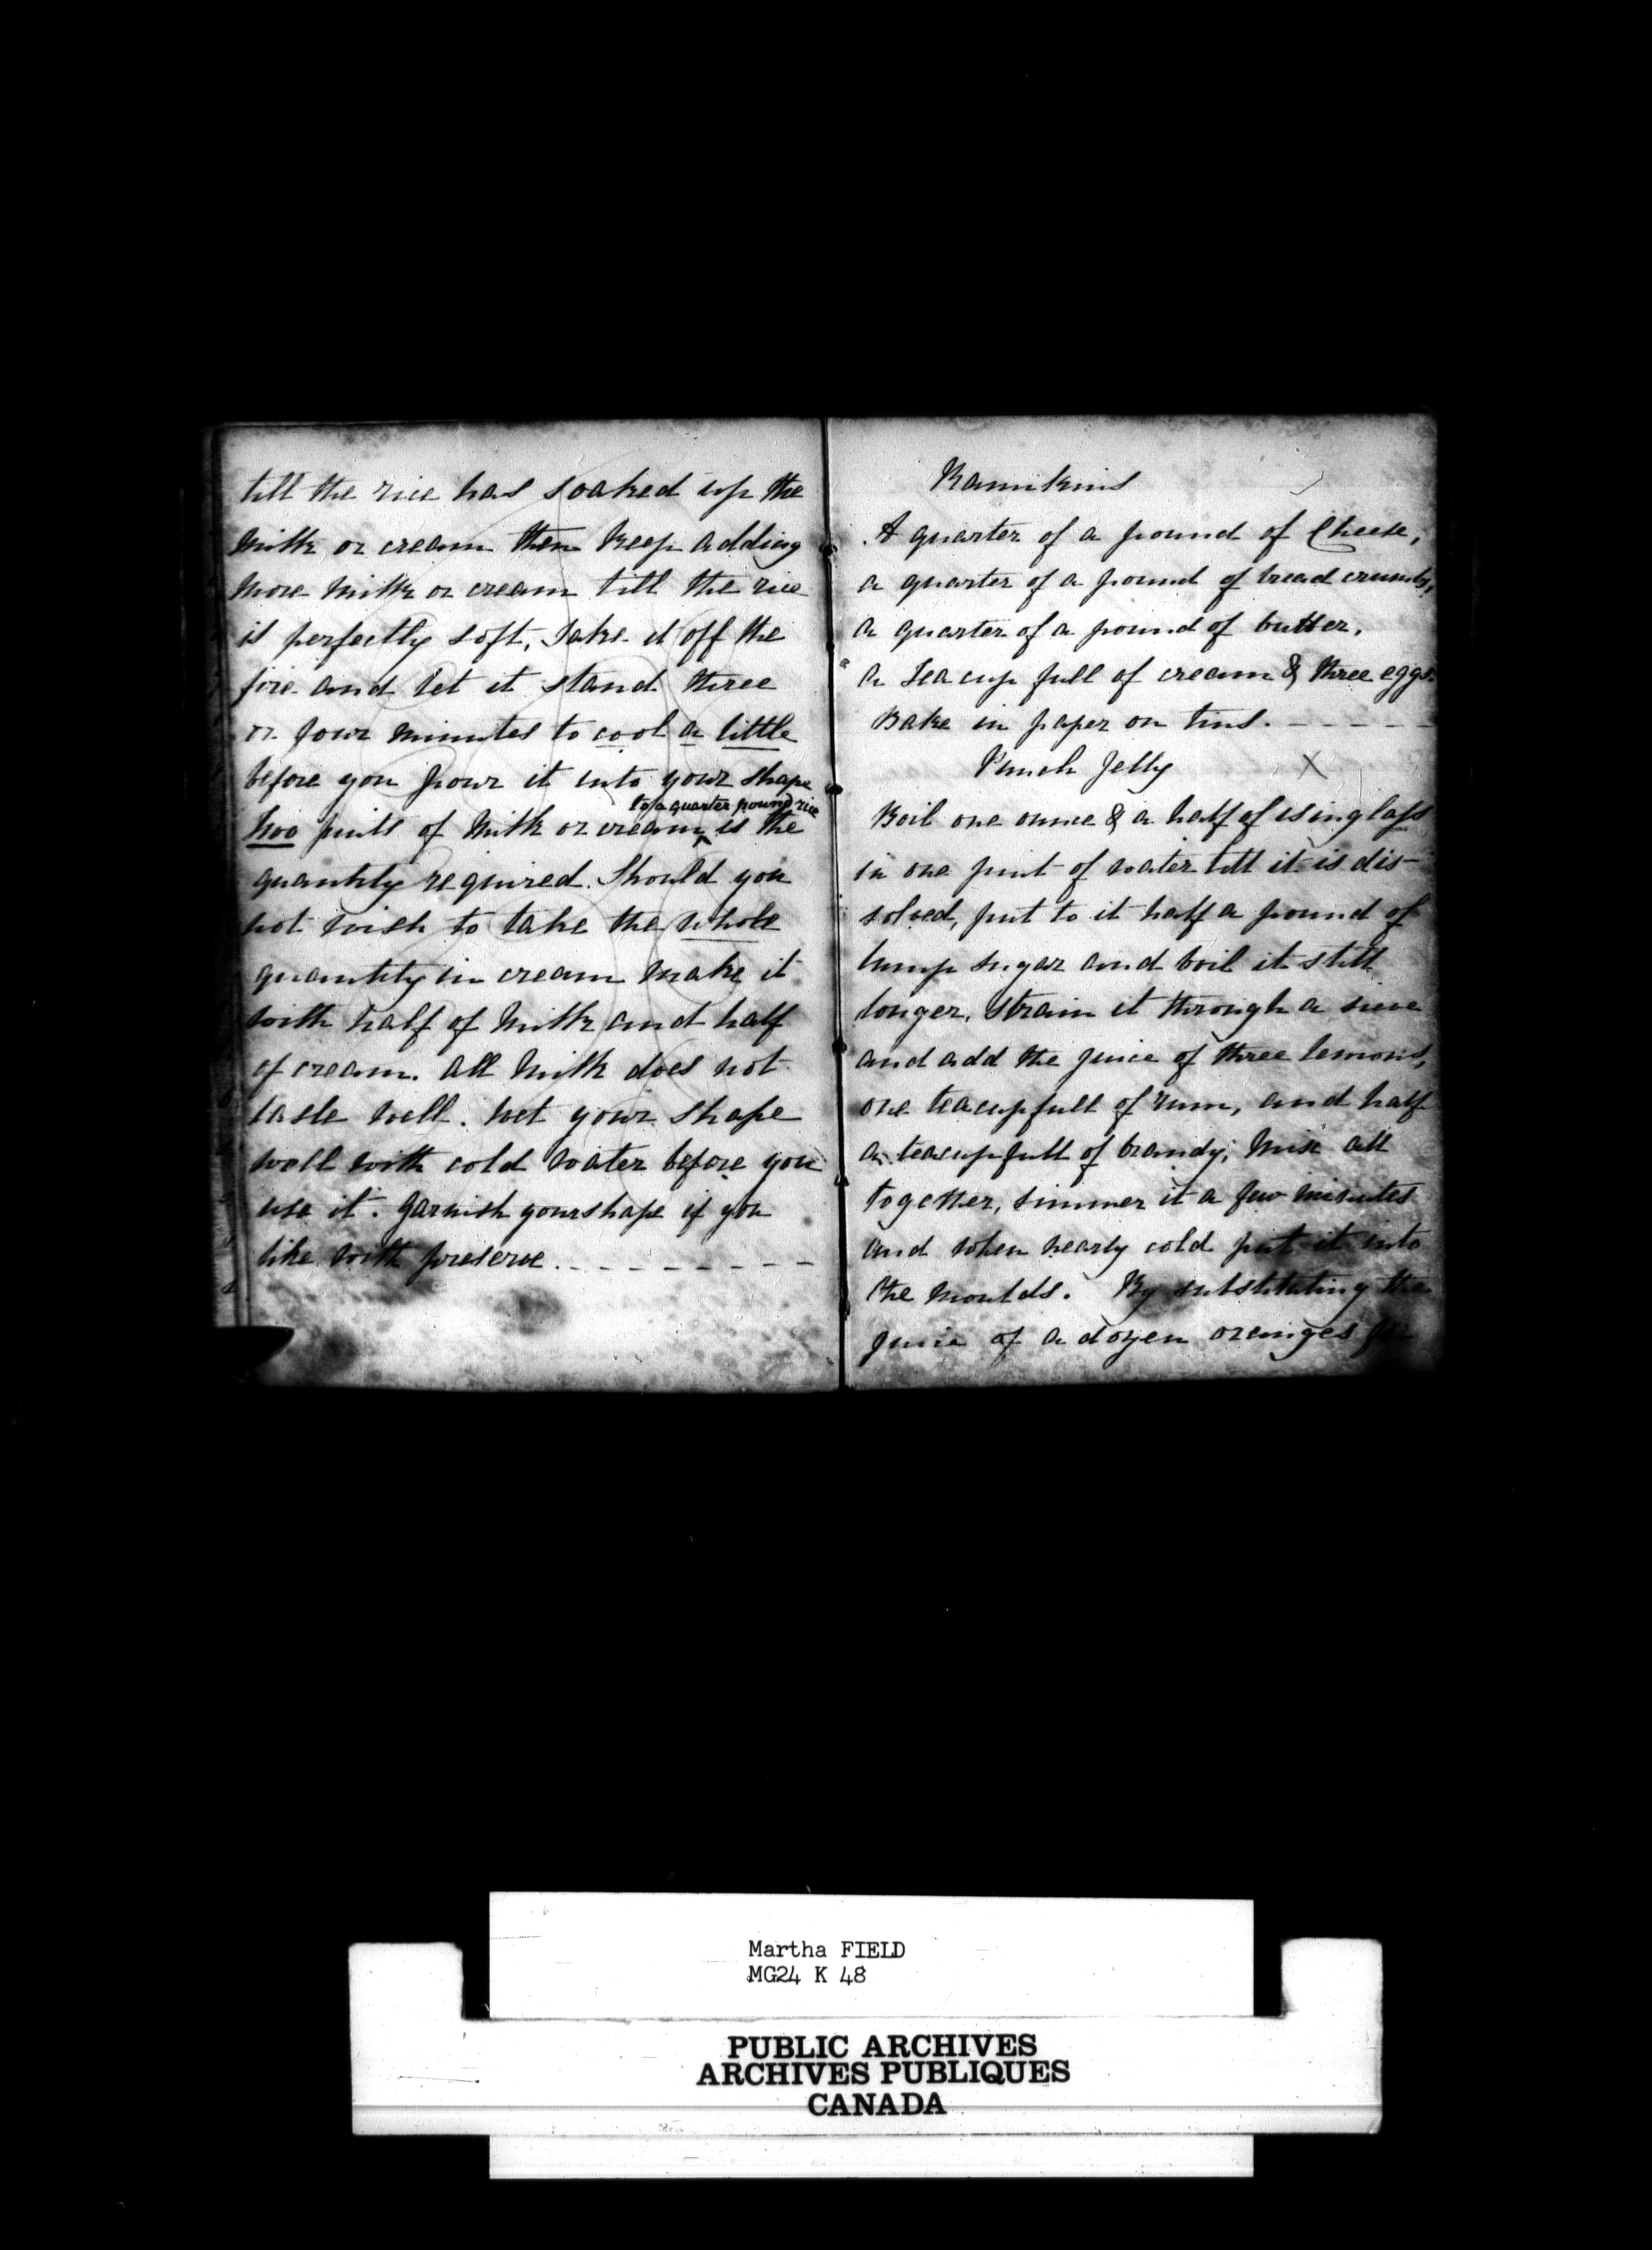 till the rice has soaked up the
milk or cream then keep adding
more milk or cream till the rice
is perfectly soft, Take it off the
fire and let it stand three
or four minutes to cool a little
before you pour it into your shape
to a quarter pound rice
two pints of milk or cream ^ is the
quantity required. Should you
not wish to take the whole
quantity in cream make it
with half of milk and half
of cream. All milk does not
taste well. Wet your shape
well with cold water before you
use it. garnish your shape if you
like with preserve. - - - - - - - - -
Ramikins
A quarter of a pound of Cheese,
a quarter of a pound of bread crumbs,
a quarter of a pound of butter,
a Tea cup full of cream & three eggs.
Bake in paper on tins. - - - - -
Punch Jelly X
Boil one ounce & a half of isinglass
in one pint of water till it is dis-
solved, put to it half a pound of
lump sugar and boil it still
longer, strain it through a sieve
and add the juice of three lemons,
one teacupfull of rum, and half
a teacupfull of brandy; mix all
together, simmer it a few minutes
and when nearly cold put it into
the moulds. By substituting the
juice of a dozen oranges for
Martha FIELD
MG24 K 48
PUBLIC ARCHIVES
ARCHIVES PUBLIQUES
CANADA